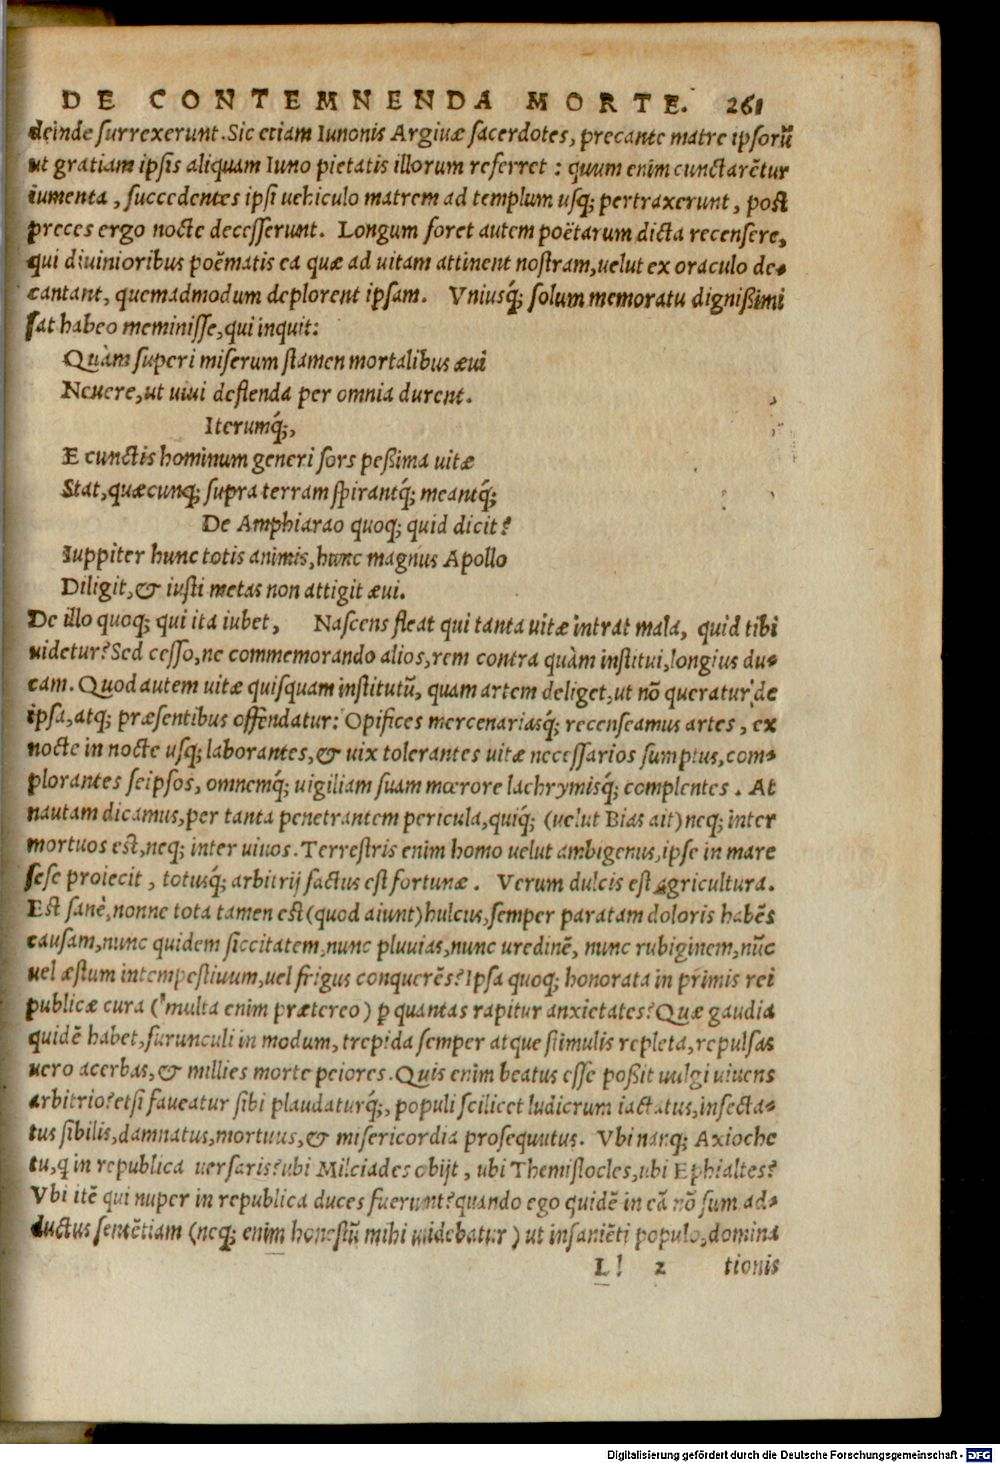 DE CONTEMNENDA MORTE. 261
deinde surrexerunt. Sic etiam Iunonis Argiuæ sacerdotes, precante matre ipsorũ
ut gratiam ipsis aliquam Iuno pietatis illorum referret : quum enim cunctarẽtur
iumenta, succedentes ipsi uehiculo matrem ad templum usq; pertraxerunt, post
preces ergo nocte decesserunt. Longum foret autem poëtarum dicta recensere,
qui diuinioribus poëmatis ea quæ ad uitam attinent nostram, uelut ex oraculo de-
cantant, quemadmodum deplorent ipsam. Vniusq́; solum memoratu dignißimi
sat habeo meminisse, qui inquit:
Quàm superi miserum stamen mortalibus æui
Neuere, ut uiui deflenda per omnia durent.
Iterumq́;,
E cunctis hominum generi sors peßima uitæ
Stat, quæcunq; supra terram spirantq́; meantq́;
De Amphiarao quoq; quid dicit?
Iuppiter hunc totis animis, hunc magnus Apollo
Diligit, & iusti metas non attigit æui.
De illo quoq; qui ita iubet, Nascens fleat qui tanta uitæ intrat mala, quid tibi
uidetur? Sed cesso, ne commemorando alios, rem contra quàm institui, longius du-
cam. Quod autem uitæ quisquam institutũ, quam artem deliget, ut nõ queratur de
ipsa, atq; præsentibus offendatur? Opifices mercenariasq́; recenseamus artes, ex
nocte in nocte usq; laborantes, & uix tolerantes uitæ necessarios sumptus, com-
plorantes seipsos, omnemq́; uigiliam suam mœrore lachrymisq́; complentes. At
nautam dicamus, per tanta penetrantem pericula, quiq́; (uelut Bias ait) neq; inter
mortuos est, neq; inter uiuos. Terrestris enim homo uelut ambigenus, ipse in mare
sese proiecit, totusq́; arbitrij factus est fortunæ. Verum dulcis est agricultura.
Est sanè, nonne tota tamen est (quod aiunt) hulcus, semper paratam doloris habẽs
causam, nunc quidem siccitatem, nunc pluuias, nunc uredinẽ, nunc rubiginem, nũc
uel æstum intempestiuum, uel frigus conquerẽs? Ipsa quoq; honorata in primis rei
publicæ cura (multa enim prætereo) p quantas rapitur anxietates? Quæ gaudia
quidẽ habet, furunculi in modum, trepida semper atque stimulis repleta, repulsas
uero acerbas, & millies morte peiores. Quis enim beatus esse poßit uulgi uiuens
arbitrio? etsi faueatur sibi plaudaturq́;, populi scilicet ludicrum iactatus, insecta-
tus sibilis, damnatus, mortuus, & misericordia prosequutus. Vbi nanq; Axioche
tu, q in republica uersaris? ubi Milciades obijt, ubi Themistocles, ubi Ephialtes?
Vbi itẽ qui nuper in republica duces fuerunt? quando ego quidẽ in eã nõ sum ad-
ductus sentẽtiam (neq; enim honestũ mihi uidebatur) ut insaniẽti populo, domina
Ll 2 tionis
Digitalisierung gefördert durch die Deutsche Forschungsgemeinschaft - DFG